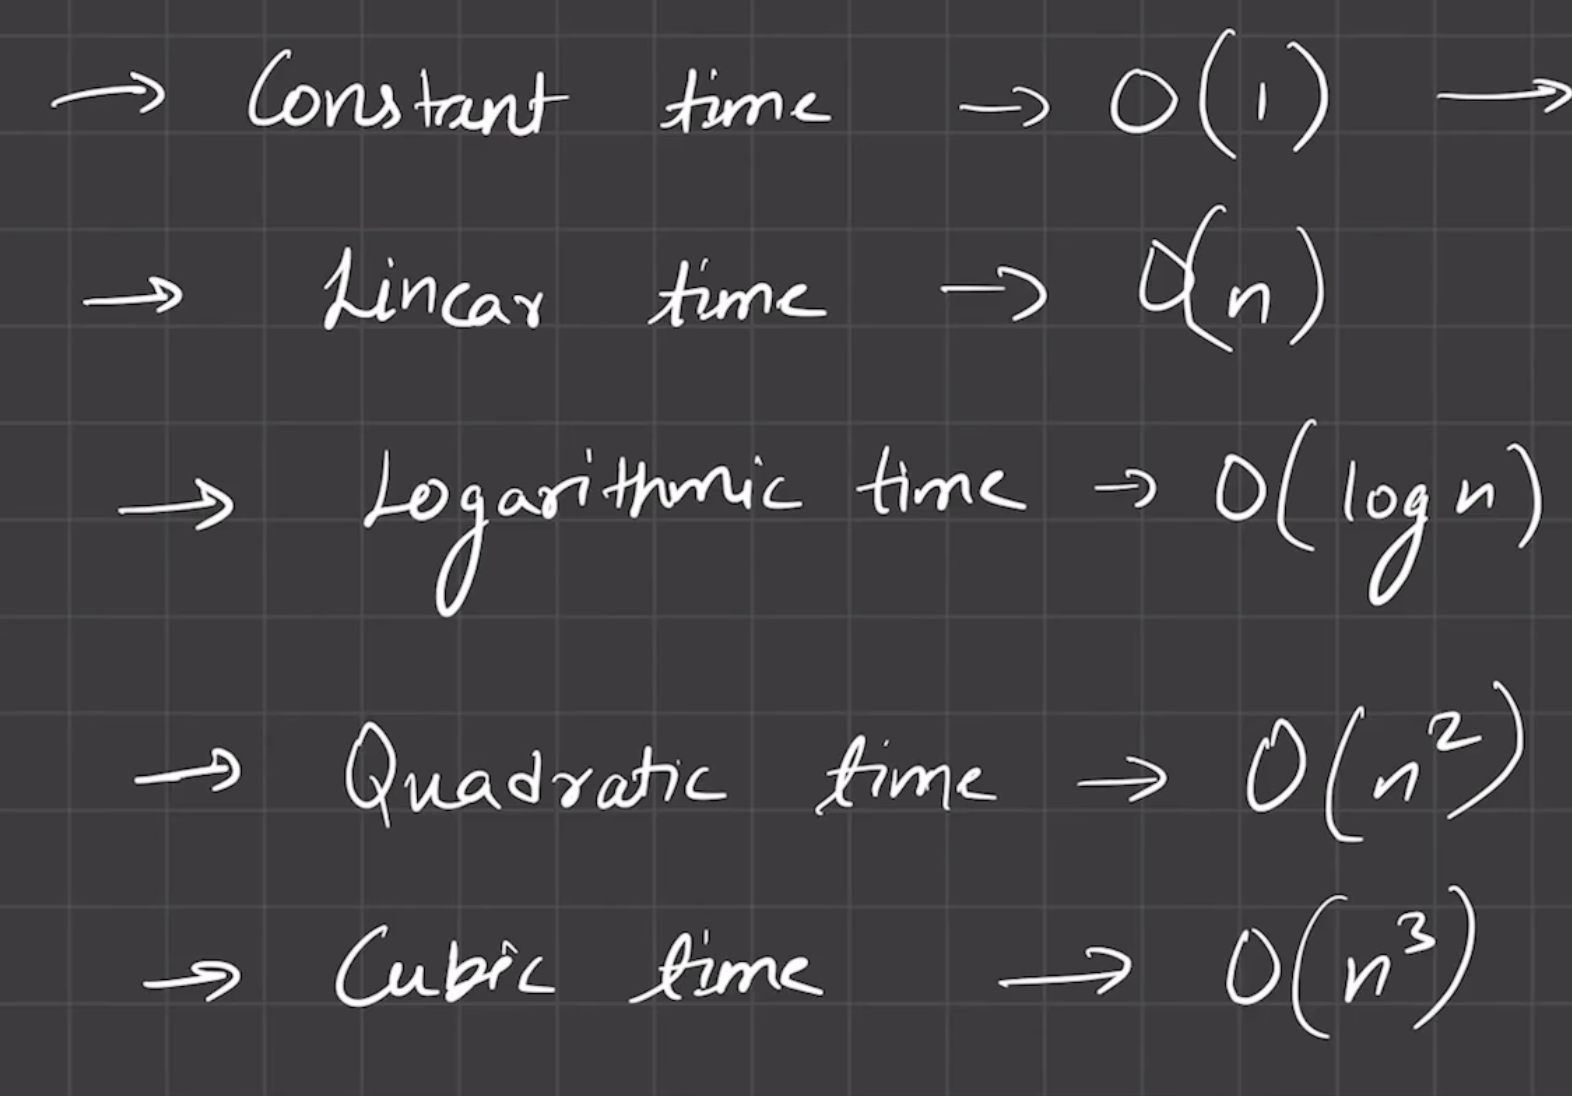 → Constant time → O(1) →
→ Linear time → O(n)
→ Logarithmic time → O(log n)
→ Quadratic time → O(n²)
→ Cubic time → O(n³)